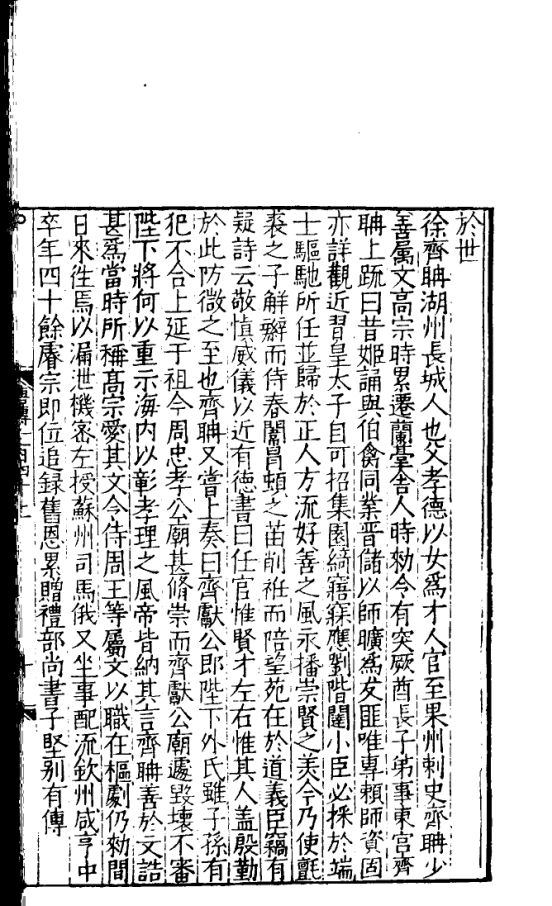 於世
徐齊聃湖州長城人也父孝德以女爲才人官至果州刺史齊聃少
善屬文高宗時累遷蘭臺舍人時勑令有突厥酋長子弟事東宮齊
聃上疏曰昔姬誦與伯禽同業晉儲以師曠爲友匪唯專賴師資固
亦詳觀近習皇太子自可招集園綺寤寐應劉階闥小臣必採於端
士驅馳所任並歸於正人方流好善之風永播崇賢之美今乃使氈
裘之子解辮而侍春闈冒頓之苗削衽而陪望苑在於道義臣竊有
疑詩云敬慎威儀以近有德書曰任官惟賢才左右惟其人盖殷勤
於此防微之至也齊聃又嘗上奏曰齊獻公即陛下外氏雖子孫有
犯不合上延于祖今周忠孝公廟甚脩崇而齊獻公廟遽毀壞不審
陛下將何以重示海内以彰孝理之風帝皆納其言齊聃善於文誥
甚爲當時所稱高宗愛其文令侍周王等屬文以職在樞劇仍勑間
日來往焉以漏泄機密左授蘇州司馬俄又坐事配流欽州咸亨中
卒年四十餘睿宗即位追録舊恩累贈禮部尚書子堅别有傳